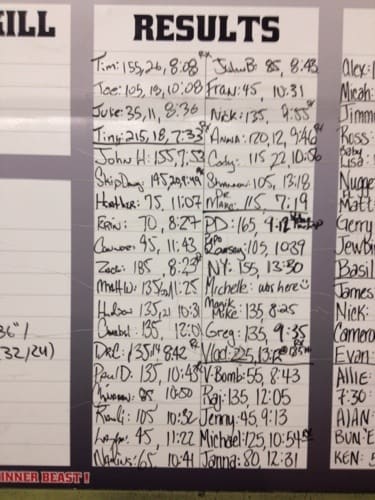 KILL
RESULTS
Tim: 155, 26, 8:08 RX
Joe: 105, 13, 10:08
Juke: 35, 11, 8:36
Tiny: 215, 18, 7:33
John H: 155, 7:53
Skip Dawg
Heather: 75, 11:07
Erin: 70, 8:27
45, 11:43
Zack: 185, 8:23
Matt W: 135, 11:25
Hudson 135, 21 10:3
135, 12:01
DRC: 135, 8:42
Paul D: 135, 10:43
85 10:50
105 10:32
45, 11:22
65, 10:41
John B: 85, 8:43
Fran: 45, 10:31
Nick: 135, 9:55
Anna: 120, 12, 9:46
Cody: 115 22, 10:56
Shannon: 105, 13:18
DR Mark: 115, 7:19
PD: 165, 9:12
Ramsey: 105, 10:39
NY: 155, 13:30
Michelle: was here
Magik Mike: 135, 8:25
Greg: 135, 9:35
Vlad: 225, 13:
V-Bomb: 55, 8:43
Raj: 135, 12:05
Jenny: 45, 9:13
Michael: 125, 10:54
Janna: 80, 12:31
Alex:
Micah:
Jimm
Ross:
Baby
Lisa:
Nugge
Matt
Gerry
Jewbi
Basil
James
Nick:
Camero
Evan:
Allie:
7:30
ALAN
BUN E
KEN: 5
36"/
(32/24)
INNER BEAST!